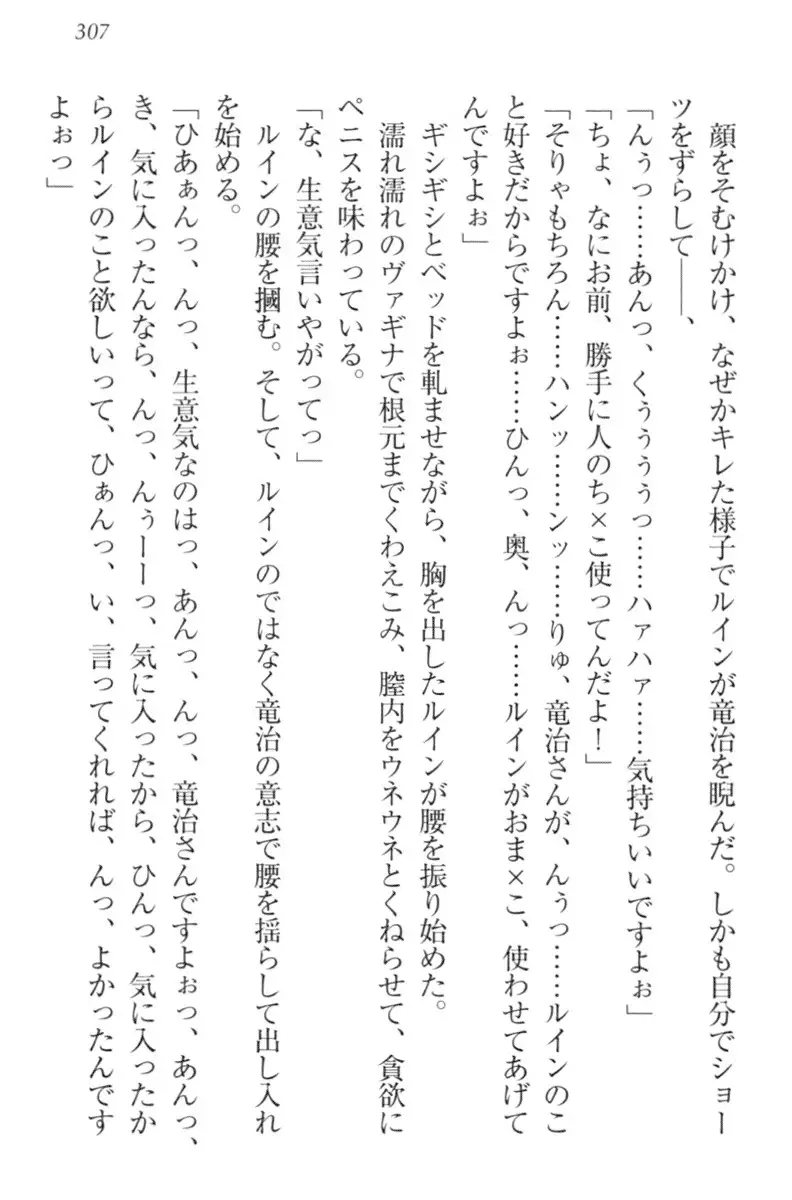 307
　顔をそむけかけ、なぜかキレた様子でルインが竜治を睨んだ。しかも自分でショー
ツをずらして――、
「んぅっ……あんっ、くぅぅぅぅっ……ハァハァ……気持ちいいですよぉ」
「ちょ、なにお前、勝手に人のち×こ使ってんだよ！」
「そりゃもちろん……ハンッ……ンッ……りゅ、竜治さんが、んぅっ……ルインのこ
と好きだからですよぉ……ひんっ、奥、んっ……ルインがおま×こ、使わせてあげて
んですよぉ」
　ギシギシとベッドを軋ませながら、胸を出したルインが腰を振り始めた。
　濡れ濡れのヴァギナで根元までくわえこみ、膣内をウネウネとくねらせて、貪欲に
ペニスを味わっている。
「な、生意気言いやがってっ」
　ルインの腰を摑む。そして、ルインのではなく竜治の意志で腰を揺らして出し入れ
を始める。
「ひあぁんっ、んっ、生意気なのはっ、あんっ、んっ、竜治さんですよぉっ、あんっ、
き、気に入ったんなら、んっ、んぅーーっ、気に入ったから、ひんっ、気に入ったか
らルインのこと欲しいって、ひぁんっ、い、言ってくれれば、んっ、よかったんです
よぉっ」